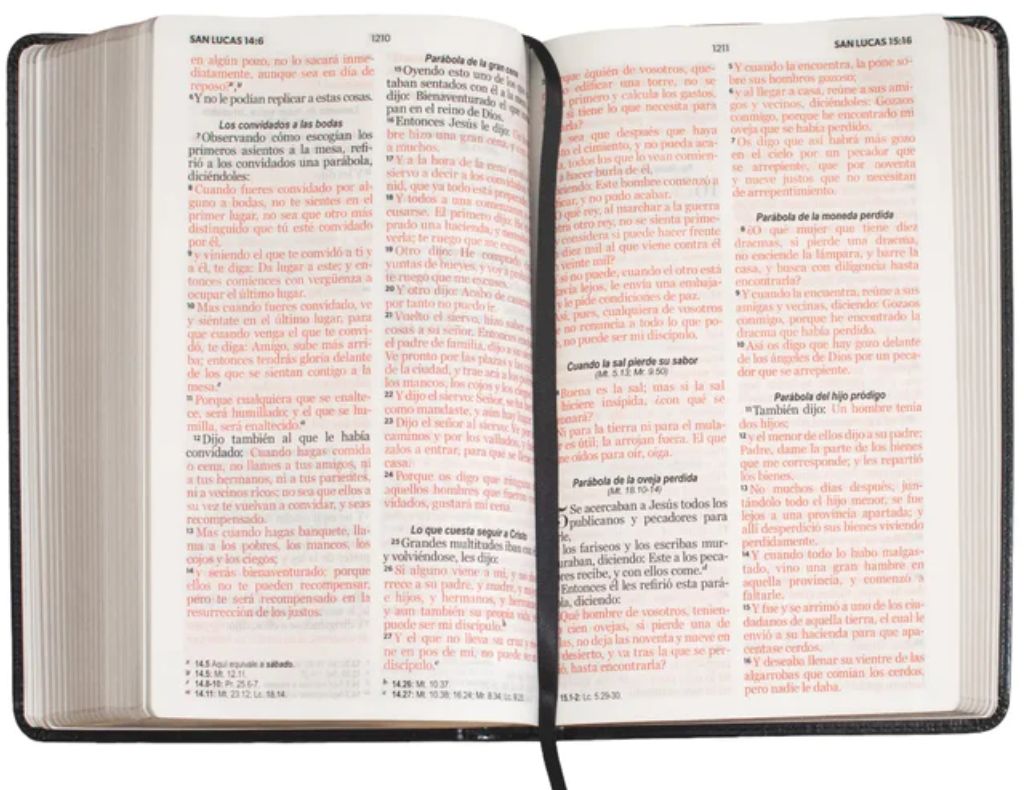 SAN LUCAS 14:6
1210
en algún pozo, no lo sacará inme-
diatamente, aunque sea en día de
reposo?
6 Y no le podían replicar a estas cosas.
Los convidados a las bodas
7 Observando cómo escogían los
primeros asientos a la mesa, refi-
rió a los convidados una parábola,
diciéndoles:
8 Cuando fueres convidado por al-
guno a bodas, no te sientes en el
primer lugar, no sea que otro más
distinguido que tú esté convidado
por él,
9 y viniendo el que te convidó a ti y
a él, te diga: Da lugar a este; y en-
tonces comiences con vergüenza a
ocupar el último lugar.
10 Mas cuando fueres convidado, ve
y siéntate en el último lugar, para
que cuando venga el que te convi-
dó, te diga: Amigo, sube más arri-
ba; entonces tendrás gloria delante
de los que se sientan contigo a la
mesa.
11 Porque cualquiera que se enalte-
ce, será humillado; y el que se hu-
milla, será enaltecido.
12 Dijo también al que le había
convidado: Cuando hagas comida
o cena, no llames a tus amigos, ni
a tus hermanos, ni a tus parientes,
ni a vecinos ricos; no sea que ellos a
su vez te vuelvan a convidar, y seas
recompensado.
13 Mas cuando hagas banquete, lla-
ma a los pobres, los mancos, los
cojos y los ciegos;
14 y serás bienaventurado; porque
ellos no te pueden recompensar,
pero te será recompensado en la
resurrección de los justos.
14.5 Aquí equivale a sábado.
14.5: Mt. 12.11.
14.8-10: Pr. 25.6-7.
14.11: Mt. 23.12; Lc. 18.14.
Parábola de la gran cena
15 Oyendo esto uno de los que
taban sentados con él a la
dijo: Bienaventurado el que
pan en el reino de Dios.
16 Entonces Jesús le dijo:
bre hizo una gran cena, y
a muchos.
17 Y a la hora de la cena
siervo a decir a los convidados
nid, que ya todo está
18 Y todos a una comenzaron
cusarse. El primero dijo: He
prado una hacienda, y
verla; te ruego que me
19 Otro dijo: He comprado
yuntas de bueyes, y voy a
te ruego que me excuses.
20 Y otro dijo: Acabo de
por tanto no puedo ir.
21 Vuelto el siervo, hizo saber
cosas a su señor. Entonces
el padre de familia, dijo a su
Ve pronto por las plazas y las
de la ciudad, y trae acá a los
los mancos, los cojos y los
22 Y dijo el siervo: Señor, se ha
como mandaste, y aún hay
23 Dijo el señor al siervo: Ve por
caminos y por los vallados, y
zalos a entrar, para que se
casa.
24 Porque os digo que
aquellos hombres que fueron
vidados, gustará mi cena.
Lo que cuesta seguir a Cristo
25 Grandes multitudes iban
y volviéndose, les dijo:
26 Si alguno viene a mí, y no
rrece a su padre, y madre, y
e hijos, y hermanos, y
y aun también su propia vida
puede ser mi discípulo.
27 Y el que no lleva su cruz y
ne en pos de mí, no puede ser
discípulo.
14.26: Mt. 10.37.
14.27: Mt. 10.38; 16.24; Mr. 8.34; Lc. 9.23.
1211
SAN LUCAS 15:16
¿quién de vosotros, que-
edificar una torre, no se
primero y calcula los gastos,
si tiene lo que necesita para
sea que después que haya
el cimiento, y no pueda aca-
todos los que lo vean comien-
hacer burla de él,
Este hombre comenzó a
y no pudo acabar.
qué rey, al marchar a la guerra
otro rey, no se sienta prime-
considera si puede hacer frente
diez mil al que viene contra él
veinte mil?
si no puede, cuando el otro está
lejos, le envía una embaja-
le pide condiciones de paz.
pues, cualquiera de vosotros
no renuncia a todo lo que po-
no puede ser mi discípulo.
Cuando la sal pierde su sabor
(Mt. 5.13; Mr. 9.50)
Buena es la sal; mas si la sal
hiciere insípida, ¿con qué se
Ni para la tierra ni para el mula-
es útil; la arrojan fuera. El que
oídos para oír, oiga.
Parábola de la oveja perdida
(Mt. 18.10-14)
Se acercaban a Jesús todos los
publicanos y pecadores para
los fariseos y los escribas mur-
diciendo: Este a los peca-
recibe, y con ellos come.
Entonces él les refirió esta pará-
diciendo:
Qué hombre de vosotros, tenien-
cien ovejas, si pierde una de
no deja las noventa y nueve en
desierto, y va tras la que se per-
hasta encontrarla?
15.1-2: Lc. 5.29-30.
5 Y cuando la encuentra, la pone so-
bre sus hombros gozoso;
6 y al llegar a casa, reúne a sus ami-
gos y vecinos, diciéndoles: Gozaos
conmigo, porque he encontrado mi
oveja que se había perdido.
7 Os digo que así habrá más gozo
en el cielo por un pecador que
se arrepiente, que por noventa
y nueve justos que no necesitan
de arrepentimiento.
Parábola de la moneda perdida
8 ¿O qué mujer que tiene diez
dracmas, si pierde una dracma,
no enciende la lámpara, y barre la
casa, y busca con diligencia hasta
encontrarla?
9 Y cuando la encuentra, reúne a sus
amigas y vecinas, diciendo: Gozaos
conmigo, porque he encontrado la
dracma que había perdido.
10 Así os digo que hay gozo delante
de los ángeles de Dios por un peca-
dor que se arrepiente.
Parábola del hijo pródigo
11 También dijo: Un hombre tenía
dos hijos;
12 y el menor de ellos dijo a su padre:
Padre, dame la parte de los bienes
que me corresponde; y les repartió
los bienes.
13 No muchos días después, jun-
tándolo todo el hijo menor, se fue
lejos a una provincia apartada; y
allí desperdició sus bienes viviendo
perdidamente.
14 Y cuando todo lo hubo malgas-
tado, vino una gran hambre en
aquella provincia, y comenzó a
faltarle.
15 Y fue y se arrimó a uno de los ciu-
dadanos de aquella tierra, el cual le
envió a su hacienda para que apa-
centase cerdos.
16 Y deseaba llenar su vientre de las
algarrobas que comían los cerdos,
pero nadie le daba.